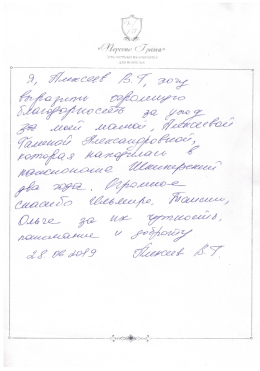 «Первая Грани»
Я, Алексеев В.Г, хочу
выразить огромную
благодарность за уход
за моей мамой, Алексеевой
Галиной Александровной,
которая находилась в
пансионате Шкиперский
два года. Огромное
спасибо Эльмире, Таисии,
Ольге за их чуткость,
понимание и доброту
28.06.2019 Алексеев В.Г.